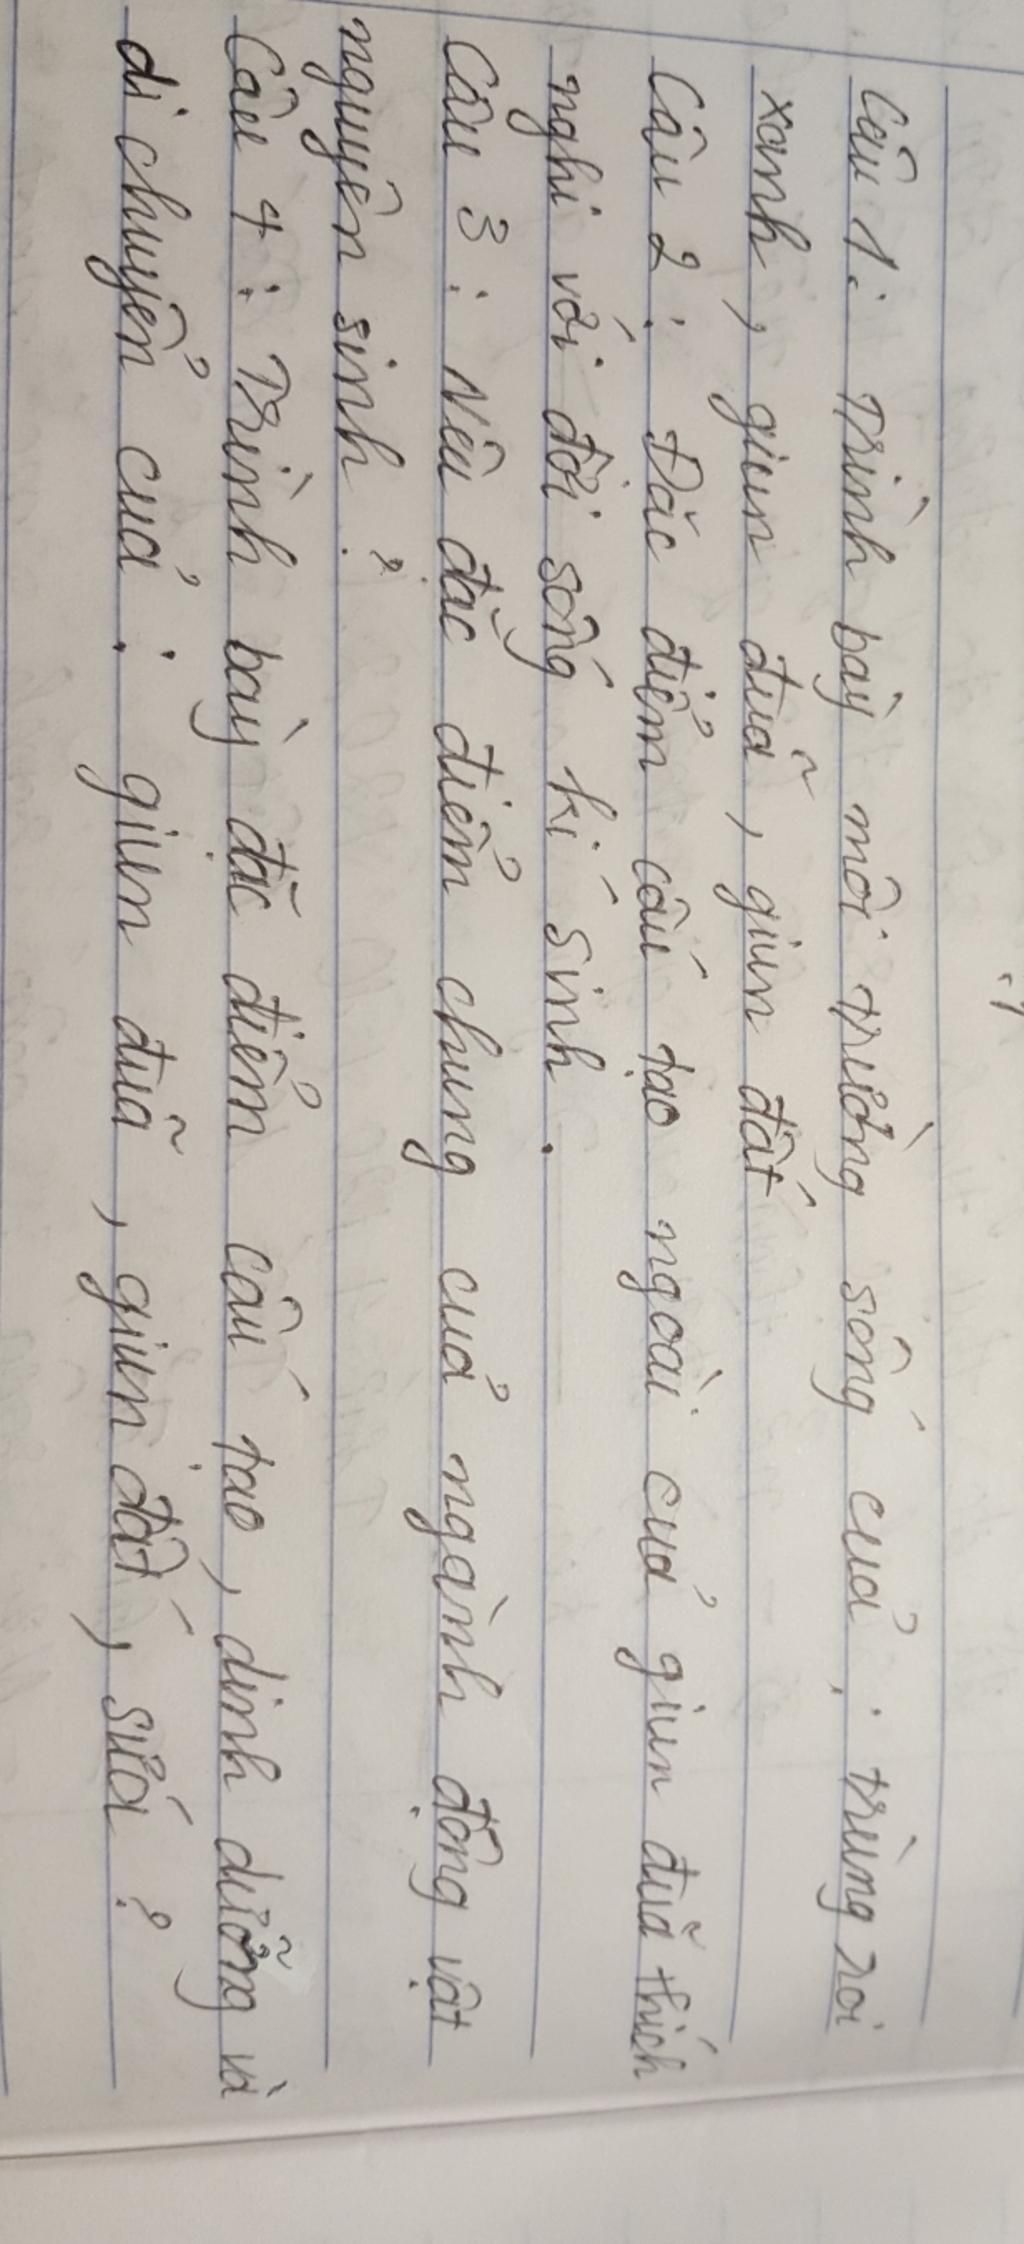 Câu 1: Trình bày môi trường sống của : trùng roi
xanh, giun đũa, giun đất
Câu 2 : Đặc điểm cấu tạo ngoài của giun đũa thích
nghi với đời sống kí sinh.
Câu 3 : Nêu đặc điểm chung của ngành động vật
nguyên sinh ?
Câu 4 : Trình bày đặc điểm cấu tạo, dinh dưỡng và
di chuyển của : giun đũa, giun đất, sứa ?